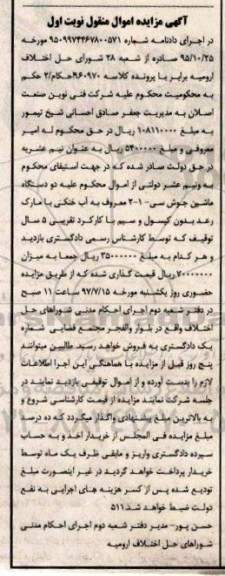 آگهی مزایده اموال منقول نوبت اول
در اجرای دادنامه شماره ۹۵۰۹۹۷۴۴۶۷۸۰۰۵۷۱ مورخه
۹۵/۱۰/۲۵ صادره از شعبه ۲۸ شورای حل اختلاف
ارومیه برابر با پرونده کلاسه ۹۶۰۹۷۰ح‌کام/۲ حکم
به محکومیت محکوم علیه شرکت فنی نوین صنعت
اصلان به مدیریت جعفر صادق احسانی شیخ تیمور
به مبلغ ۱۰۸۱۱۰۰۰۰ ریال در حق محکوم له امیر
معروفی و مبلغ ۵۴۰۰۰۰۰ ریال به عنوان نیم عشریه
در حق دولت صادر شده که در جهت استیفای محکوم
به ونیم عشر دولتی از اموال محکوم علیه دو دستگاه
ماشین جوش سی-۲۰۱ معروف به آب خنکی با مارک
رعد بدون کپسول و سیم با کارکرد تقریبی ۵ سال
توقیف که توسط کارشناس رسمی دادگستری بازدید
و هر کدام به مبلغ ۳۵۰۰۰۰۰۰ ریال جمعا به میزان
۷۰۰۰۰۰۰۰ ریال قیمت گذاری شده که از طریق مزایده
حضوری روز یکشنبه مورخه ۹۷/۷/۱۵ ساعت ۱۱ صبح
در دفتر شعبه دوم اجرای احکام مدنی شوراهای حل
اختلاف واقع در بلوار والفجر مجتمع قضایی شماره
یک دادگستری به فروش خواهد رسید طالبین میتوانند
پنج روز قبل از مزایده با هماهنگی این اجرا اطلاعات
لازم را بدست آورده و از اموال توقیفی بازدید نمایند در
جلسه شرکت نمایند مزایده از قیمت کارشناسی شروع و
به بالاترین مبلغ پیشنهادی واگذار میگردد که ده درصد
مبلغ مزایده فی المجلس از خریدار اخذ و به حساب
سپرده دادگستری واریز و مابقی ظرف یک ماه توسط
خریدار پرداخت خواهد گردید در غیر اینصورت مبلغ
تودیع شده پس از کسر هزینه های اجرایی به نفع
دولت ضبط خواهد شد ۵۱۱
حسن پور- مدیر دفتر شعبه دوم اجرای احکام مدنی
شوراهای حل اختلاف ارومیه